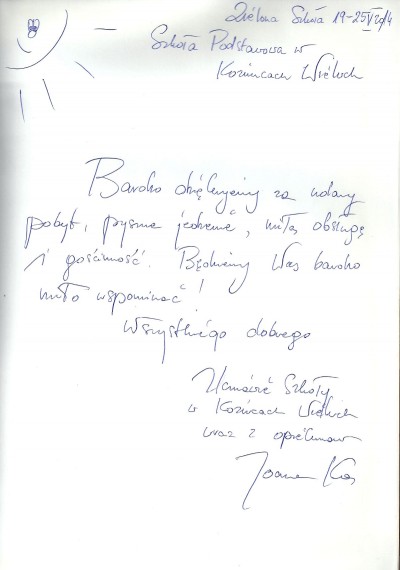 Zielona Szkoła 19-25 VI 2014
Szkoła Podstawowa w
Kozłowcach Wielkich
Bardzo dziękujemy za udany
pobyt, pyszne jedzenie, miłą obsługę
i gościnność. Będziemy Was bardzo
miło wspominać!
Wszystkiego dobrego
Uczniowie Szkoły
w Wielkich
wraz z opiekunami
Joanna